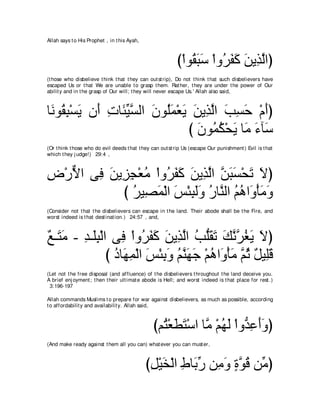 Allah says to His Prophet , in this Ayah,
(الَّذِينَ كَفَرُواْ سَبَقُواْ)
(those who disbelieve think that they can outstrip), Do not think that such disbelievers have
escaped Us or that We are unable to grasp them. Rather, they are under the power of Our
ability and in the grasp of Our will; they will never escape Us.' Allah also said,
(أَمْ حَسِبَ الَّذِينَ يَعْمَلُونَ السَّيِّئَاتِ أَن يَسْبِقُونَا
سَآءَ مَا يَحْكُمُونَ )
(Or think those who do evil deeds that they can outstrip Us (escape Our punishment) Evil is that
which they judge!) 29:4 ,
(لاَ تَحْسَبَنَّ الَّذِينَ كَفَرُواْ مُعْجِزِينَ فِى الاٌّرْضِ
وَمَأْوَاهُمُ النَّارُ وَلَبِئْسَ الْمَصِيرُ )
(Consider not that the disbelievers can escape in the land. Their abode shall be the Fire, and
worst indeed is that destination.) 24:57 , and,
(لاَ يَغُرَّنَّكَ تَقَلُّبُ الَّذِينَ كَفَرُواْ فِى الْبِلَـدِ - مَتَـعٌ
قَلِيلٌ ثُمَّ مَأْوَاهُمْ جَهَنَّمُ وَبِئْسَ الْمِهَادُ )
(Let not the free disposal (and affluence) of the disbelievers throughout the land deceive you.
A brief enjoyment; then their ultimate abode is Hell; and worst indeed is that place for rest.)
3:196-197
Allah commands Muslims to prepare for war against disbelievers, as much as possible, according
to affordability and availability. Allah said,
(وَأَعِدُّواْ لَهُمْ مَّا اسْتَطَعْتُم)
(And make ready against them all you can) whatever you can muster,
(مِّن قُوَّةٍ وَمِن رِّبَاطِ الْخَيْلِ)